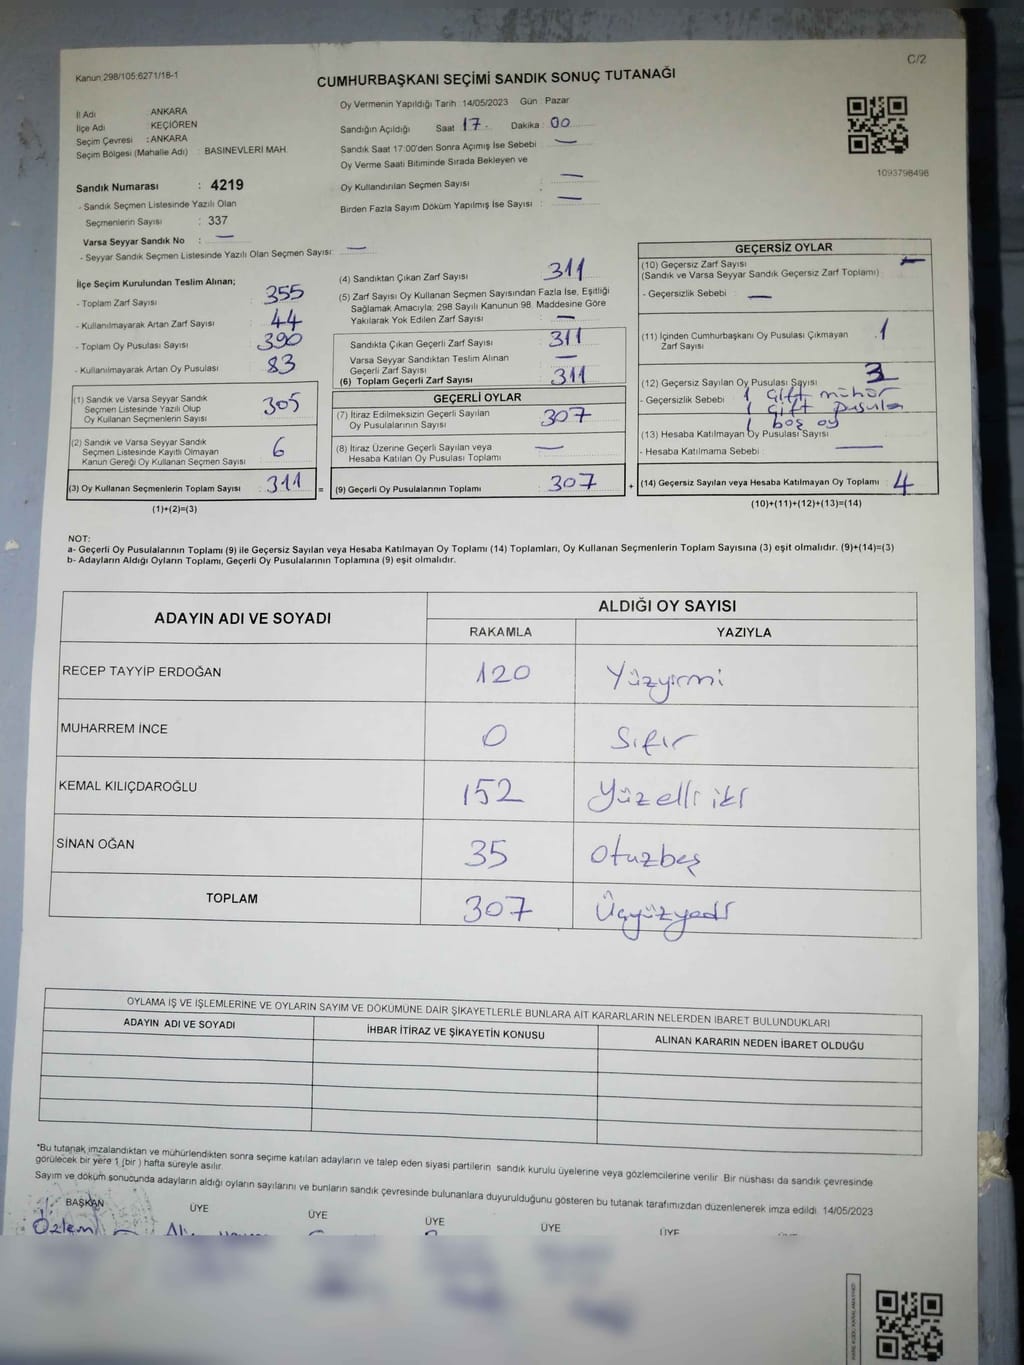 Kanun:298/105:6271/18-1
C/2
CUMHURBAŞKANI SEÇİMİ SANDIK SONUÇ TUTANAĞI
İl Adı : ANKARA
İlçe Adı : KEÇİÖREN
Seçim Çevresi : ANKARA
Seçim Bölgesi (Mahalle Adı) : BASINEVLERİ MAH.
Oy Vermenin Yapıldığı Tarih : 14/05/2023 Gün : Pazar
Sandığın Açıldığı Saat : 17. Dakika : 00
Sandık Saat 17:00'den Sonra Açımış İse Sebebi : —
Oy Verme Saati Bitiminde Sırada Bekleyen ve
Oy Kullandırılan Seçmen Sayısı : —
Birden Fazla Sayım Döküm Yapılmış İse Sayısı : —
1093798498
Sandık Numarası : 4219
- Sandık Seçmen Listesinde Yazılı Olan
Seçmenlerin Sayısı : 337
Varsa Seyyar Sandık No : —
- Seyyar Sandık Seçmen Listesinde Yazılı Olan Seçmen Sayısı: —
İlçe Seçim Kurulundan Teslim Alınan;
- Toplam Zarf Sayısı : 355
- Kullanılmayarak Artan Zarf Sayısı : 44
- Toplam Oy Pusulası Sayısı : 390
- Kullanılmayarak Artan Oy Pusulası : 83
(1) Sandık ve Varsa Seyyar Sandık
Seçmen Listesinde Yazılı Olup
Oy Kullanan Seçmenlerin Sayısı : 305
(2) Sandık ve Varsa Seyyar Sandık
Seçmen Listesinde Kayıtlı Olmayan
Kanun Gereği Oy Kullanan Seçmen Sayısı : 6
(3) Oy Kullanan Seçmenlerin Toplam Sayısı : 311 =
(1)+(2)=(3)
(4) Sandıktan Çıkan Zarf Sayısı : 311
(5) Zarf Sayısı Oy Kullanan Seçmen Sayısından Fazla İse, Eşitliği
Sağlamak Amacıyla; 298 Sayılı Kanunun 98. Maddesine Göre
Yakılarak Yok Edilen Zarf Sayısı : —
Sandıkta Çıkan Geçerli Zarf Sayısı : 311
Varsa Seyyar Sandıktan Teslim Alınan
Geçerli Zarf Sayısı : —
(6) Toplam Geçerli Zarf Sayısı : 311
GEÇERLİ OYLAR
(7) İtiraz Edilmeksizin Geçerli Sayılan
Oy Pusulalarının Sayısı : 307
(8) İtiraz Üzerine Geçerli Sayılan veya
Hesaba Katılan Oy Pusulası Toplamı : —
(9) Geçerli Oy Pusulalarının Toplamı : 307 +
GEÇERSİZ OYLAR
(10) Geçersiz Zarf Sayısı : —
(Sandık ve Varsa Seyyar Sandık Geçersiz Zarf Toplamı)
- Geçersizlik Sebebi : —
(11) İçinden Cumhurbaşkanı Oy Pusulası Çıkmayan : 1
Zarf Sayısı
(12) Geçersiz Sayılan Oy Pusulası Sayısı : 3
- Geçersizlik Sebebi : 1 çift mühür
1 çift pusula
1 boş oy
(13) Hesaba Katılmayan Oy Pusulası Sayısı :
- Hesaba Katılmama Sebebi : —
(14) Geçersiz Sayılan veya Hesaba Katılmayan Oy Toplamı : 4
(10)+(11)+(12)+(13)=(14)
NOT:
a- Geçerli Oy Pusulalarının Toplamı (9) ile Geçersiz Sayılan veya Hesaba Katılmayan Oy Toplamı (14) Toplamları, Oy Kullanan Seçmenlerin Toplam Sayısına (3) eşit olmalıdır. (9)+(14)=(3)
b- Adayların Aldığı Oyların Toplamı, Geçerli Oy Pusulalarının Toplamına (9) eşit olmalıdır.
ADAYIN ADI VE SOYADI
ALDIĞI OY SAYISI
RAKAMLA YAZIYLA
RECEP TAYYİP ERDOĞAN 120 Yüzyirmi
MUHARREM İNCE 0 Sıfır
KEMAL KILIÇDAROĞLU 152 Yüzelli iki
SİNAN OĞAN 35 Otuzbeş
TOPLAM 307 Üçyüzyedi
OYLAMA İŞ VE İŞLEMLERİNE VE OYLARIN SAYIM VE DÖKÜMÜNE DAİR ŞİKAYETLERLE BUNLARA AİT KARARLARIN NELERDEN İBARET BULUNDUKLARI
ADAYIN ADI VE SOYADI İHBAR İTİRAZ VE ŞİKAYETİN KONUSU ALINAN KARARIN NEDEN İBARET OLDUĞU
*Bu tutanak imzalandıktan ve mühürlendikten sonra seçime katılan adayların ve talep eden siyasi partilerin sandık kurulu üyelerine veya gözlemcilerine verilir. Bir nüshası da sandık çevresinde
görülecek bir yere 1 (bir) hafta süreyle asılır.
Sayım ve döküm sonucunda adayların aldığı oyların sayılarını ve bunların sandık çevresinde bulunanlara duyurulduğunu gösteren bu tutanak tarafımızdan düzenlenerek imza edildi. 14/05/2023
BAŞKAN ÜYE ÜYE ÜYE ÜYE ÜYE
Özlem